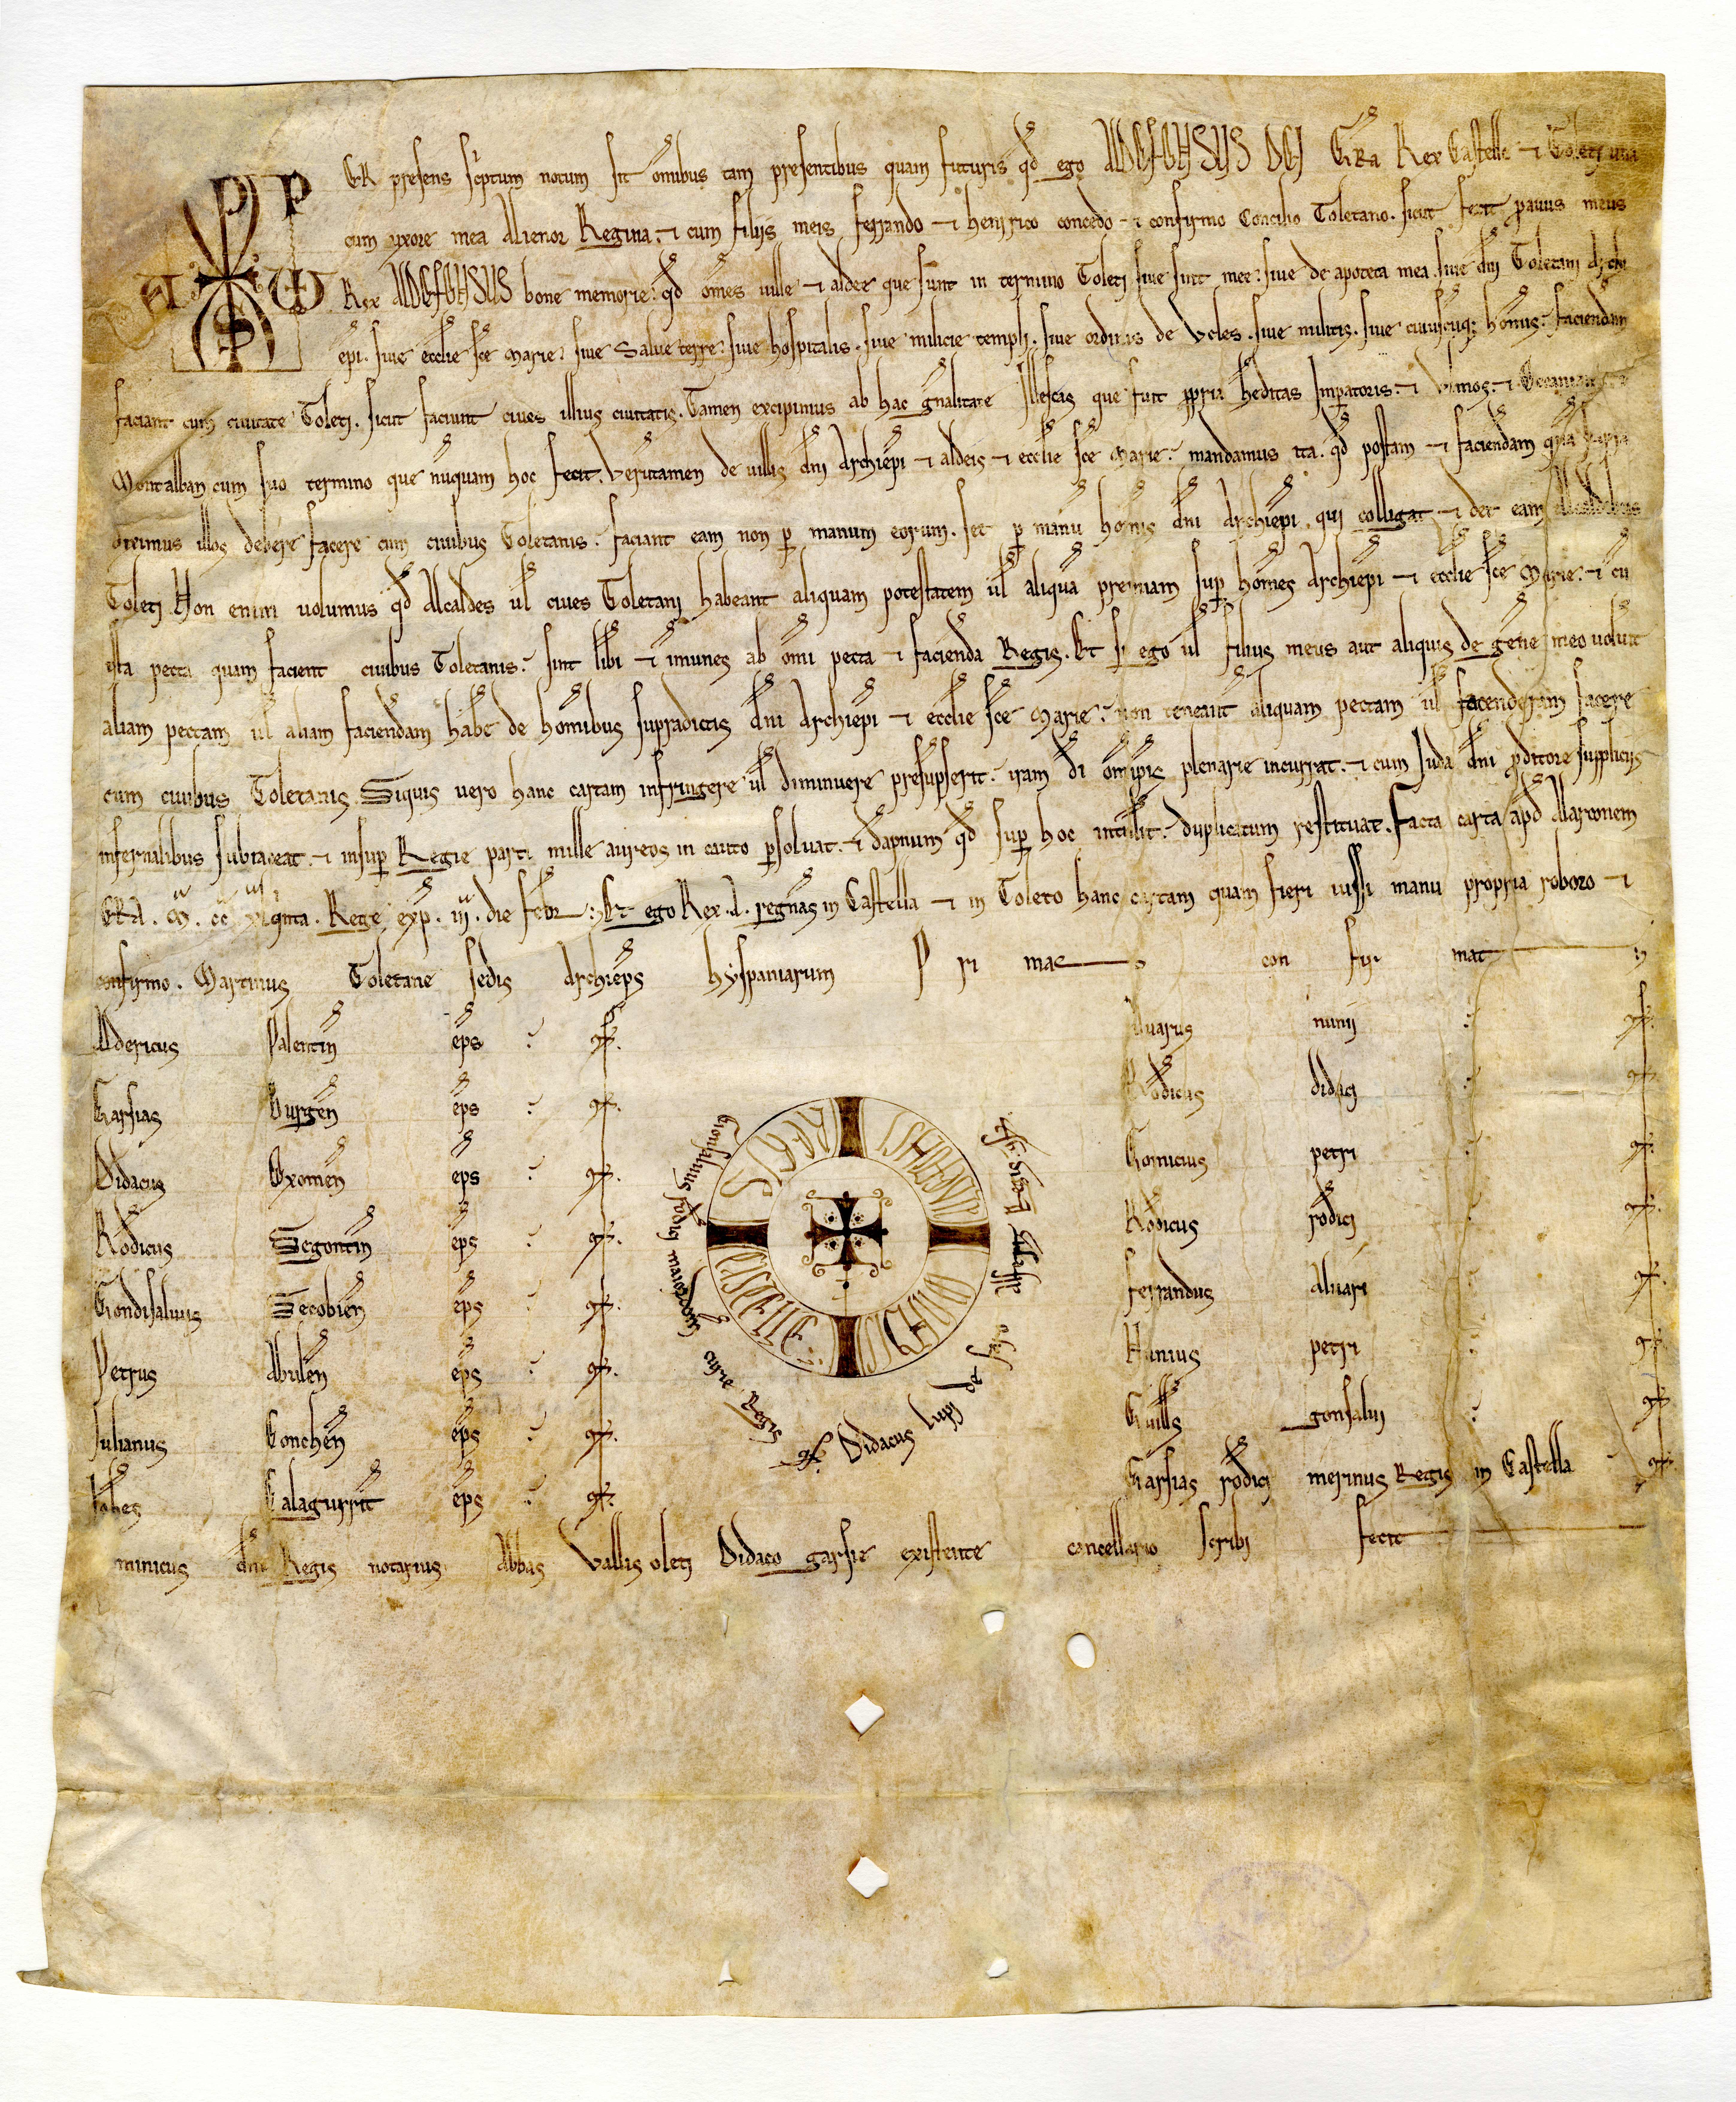 P ER presens scriptum notum sit omibus tam presentibus quam futuris qd ego ALDEFONSUS DEI GRA Rex Castelle et Toleti una
cum uxore mea Alienor Regina. et cum filiis meis ferrando et henrrico concedo et confirmo Concilio Toletano. sicut fecit pavus meus
A ω
S
Rex ALDEFONSUS bone memorie: qd omes uille et aldee que sunt in termino Toleti siue sint mee: siue de apoteca mea. siue dni Toletani Archi
epi. siue ecclie sce Marie: siue Salue terre: siue hospitalis. siue milicie templi. siue ordinis de Ucles. siue militis. siue cuiuscuq; homis: faciendam
faciant cum ciuitate Toleti. sicut faciunt ciues illius ciuitatis. Tamen excipimus ab hac gnalitate Illescas que fuit ppria heditas Impatoris. et Ulmos. et
Montalban cum suo termino que nuquam hoc fecit. Verutamen de uillis dni Archiepi et aldeis et ecclie sce Marie: mandamus ita. qd postam et faciendam qua supra
diximus illos debere facere cum ciuibus Toletanis: faciant eam non p manum eorum. set p manu homis dni Archiepi qui colligat et det eam alcaldibus
Toleti. Non enim uolumus qd Alcaldes ul ciues Toletani habeant aliquam potestatem ul aliqua premiam sup homes Archiepi et ecclie sce Marie. et cu
ista pecta quam facient ciuibus Toletanis: sint libi et imunes ab omi pecta et facienda Regis. Et si ego ul filius meus aut aliquis de gene meo uoluit
aliam pectam ul aliam faciendam habe de homibus supradictis dni Archiepi et ecclie sce Marie: non teneant aliquam pectam ul facenderam facere
cum ciuibus Toletanis. Siquis uero hanc cartam infringere ul diminuere presupserit: iram di omipis plenarie incurrat. et cum Iuda dni pditore suppliciis
infernalibus subiaceat. et insup Regie parti mille aureos in cauto psoluat. et dapnum qd sup hoc intulit: duplicatum restituat. Facta carta apd Alarconem
ERA. M. CC. XL qinta. Rege exp. III. die febr: Et ego Rex .A. regnas in Castella et in Toleto hanc cartam quam fieri iussi manu propria roboro et
confirmo. Martinus Toletane sedis Archieps hyspaniarum P ri mas con fir mat
Aldericus Palentin eps: cf.
Garsias Burgen eps: cf.
Didacus Oxomen eps: cf.
Rodicus Segontin eps: cf.
Gondisaluus Secobien eps: cf.
Petrus Abulen eps: cf.
Iulianus Conchen eps: cf.
Iohes Calagurrit eps: cf.
SIGNUM ALDEFONSI REGIS CASTELLE
Gonsaluus rodici maiordom curie Regis cf.
Didacus lupi de faro alferiz Regis cf.
Aluarus nunii: cf.
Rodicus didaci: cf.
Gomicius petri: cf.
Rodicus rodici: cf.
ferrandus aluari: cf.
Nunius petri: cf.
Guills gonsalui: cf.
Garsias rodici merinus Regis in Castella cf.
minicus dni Regis notarius Abbas Vallis oleti Didaco garsie existente cancellario scribi fecit